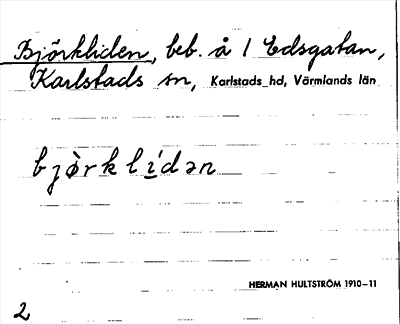 Björkliden, beb. å 1 Edsgatan,
Karlstads sn, Karlstads hd, Värmlands län
bjö̀rklídən
HERMAN HULTSTRÖM 1910–11
2